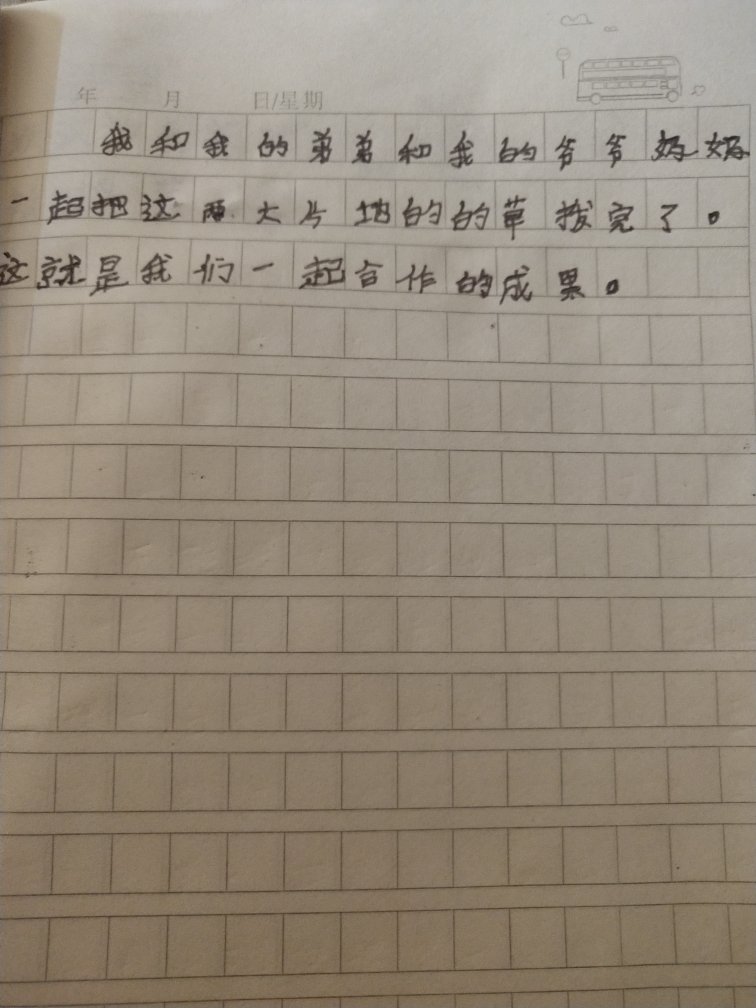 年 月 日/星期
我和我的弟弟和我的爷爷奶奶
一起把这两大片地的的草拨完了。
这就是我们一起合作的成果。